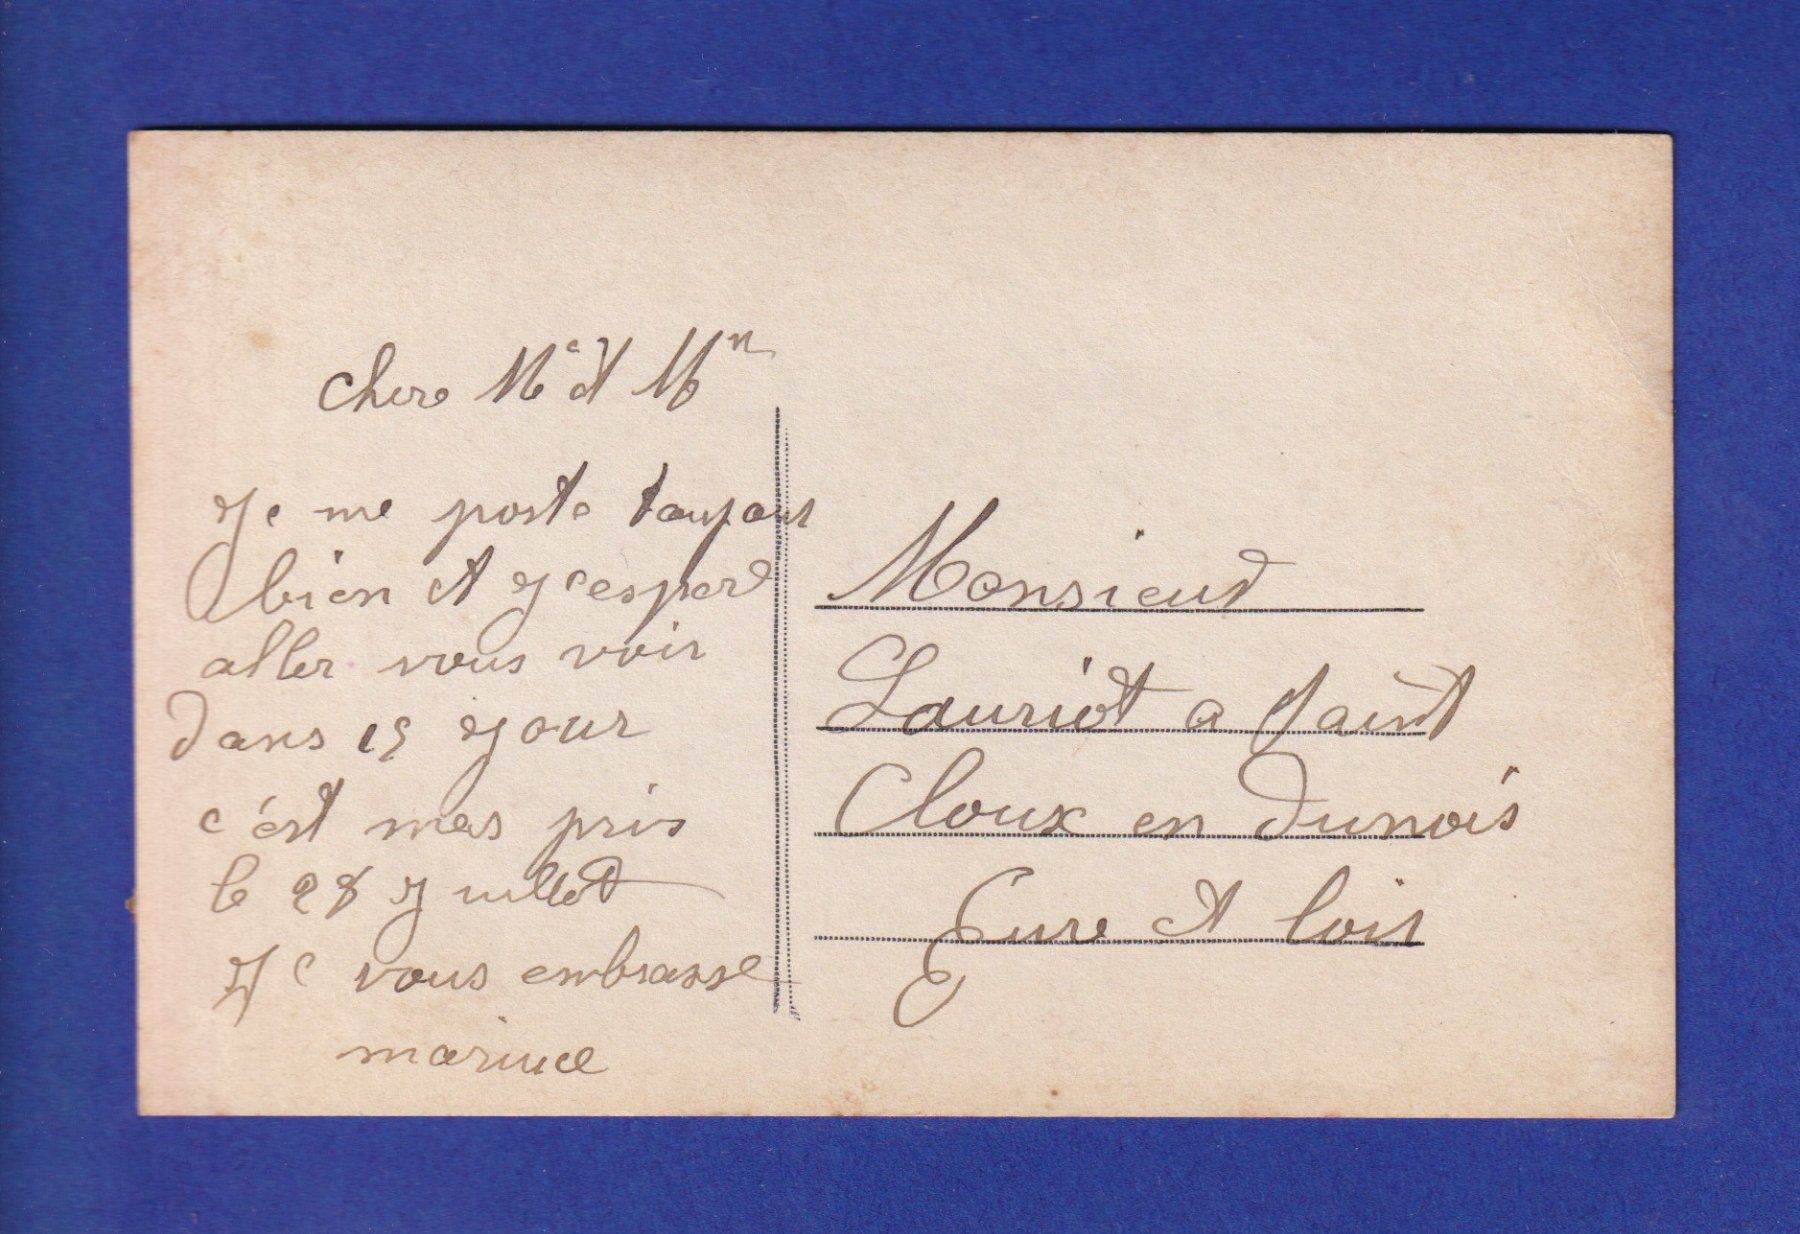 chere Me et Mn
Je me porte toujour
bien et J'espere
aller vous voir
dans 15 Jour
c'est mes pris
le 28 Juillet
Je vous embrasse
Monsieur
Lauriot a Saint
Cloux en Dunois
Eure et loir